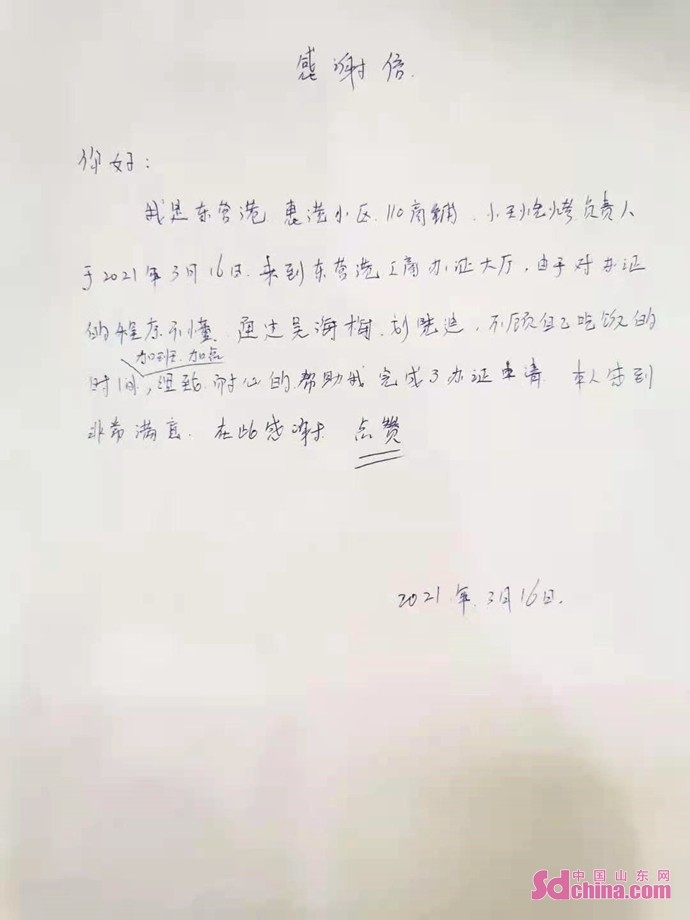 感谢信.
你好：
我是东营港 惠港小区.110商铺. 小 烧烤负责人
于2021年3月16日.来到东营港工商办证大厅,由于对办证
的程序不懂.通过吴海梅. ,不顾自己吃饭的
加班.加点
时间, 耐心的帮助我完成了办证申请. 本人感到
非常满意. 在此感谢. 点赞
2021年.3月16日.
中国山东网
Sdchina.com